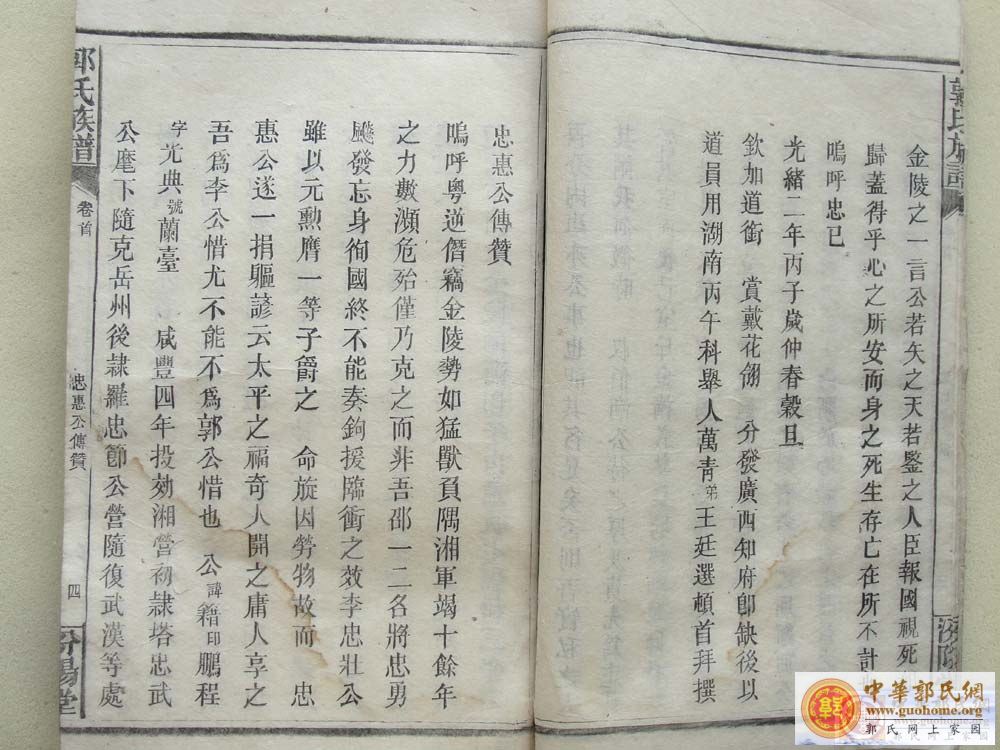 金陵之一言公若矢之天若鑒之人臣報國視死
歸蓋得乎心之所安而身之死生存亡在所不計
嗚呼忠已
光緒二年丙子歲仲春穀旦
欽加道銜 賞戴花翎 分發廣西知府卽缺後以
道員用湖南丙午科舉人萬青弟王廷選頓首拜撰
忠惠公傳贊
嗚呼粵逆僭竊金陵勢如猛獸負隅湘軍竭十餘年
之力數瀕危殆僅乃克之而非吾邵一二名將忠勇
飈發忘身徇國終不能奏鉤援臨衝之效李忠壯公
雖以元勲膺一等子爵之 命旋因勞物故而 忠
惠公遂一捐軀諺云太平之福奇人開之庸人享之
吾爲李公惜尤不能不爲郭公惜也 公諱籍印鵬程
字光典號蘭臺 咸豐四年投効湘營初隸塔忠武
公麾下隨克岳州後隸羅忠節公營隨復武漢等處
郭氏族譜
卷首
忠惠公傳贊
四
汾陽堂
郭氏族譜
中華郭氏網
www.guohome.org
郭氏網上家園